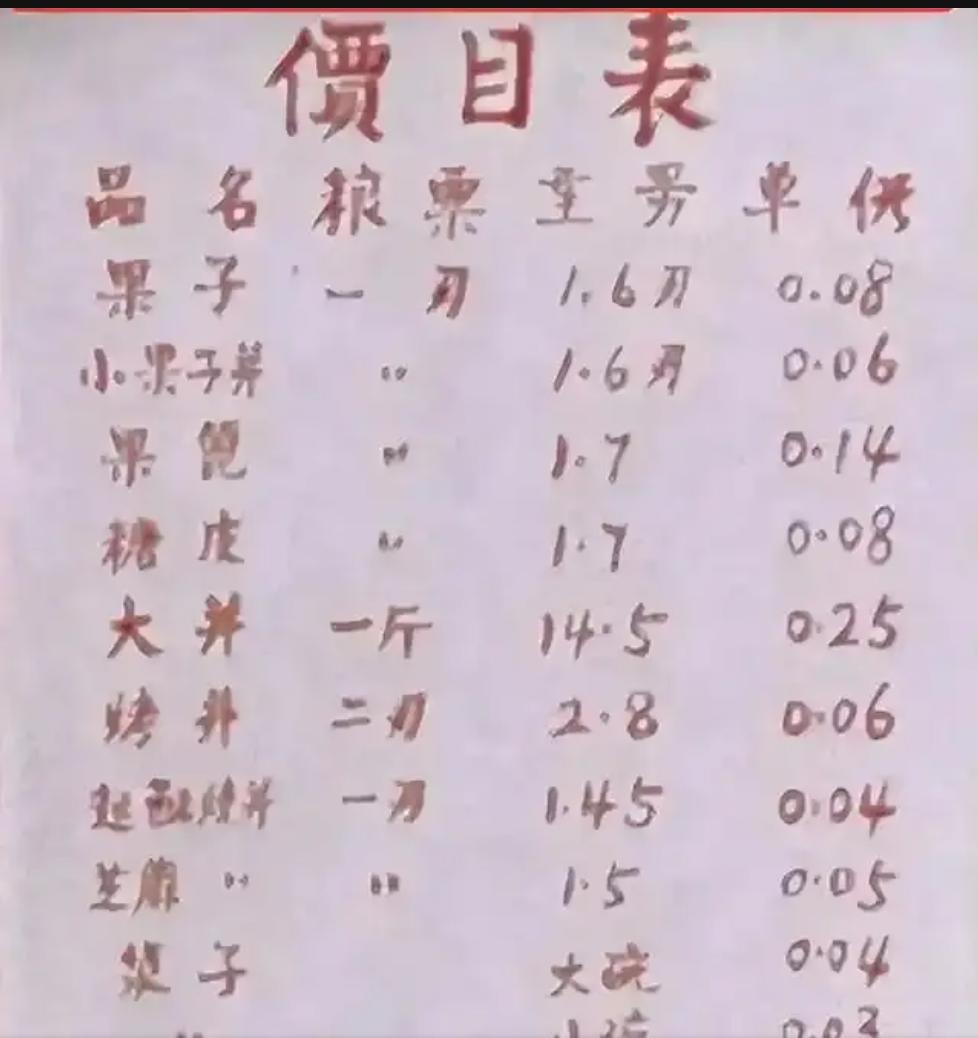 價目表
品名 粮票 重男 单价
果子 一刃 1.6刃 0.08
小果子并 〃 1.6刃 0.06
果篦 〃 1.7 0.14
糖皮 〃 1.7 0.08
大并 一斤 14.5 0.25
烤并 二刃 2.8 0.06
起酥烤并 一刃 1.45 0.04
芝麻〃 〃 1.5 0.05
浆子 大碗 0.04
〃 小碗 0.03